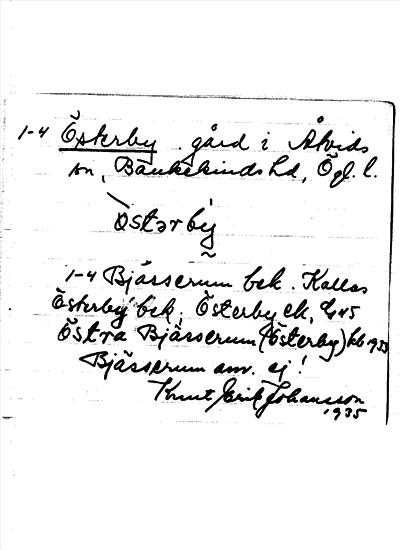 1-4 Österby gård i Åtvids
sn, Bankekinds hd, Ögl. l.
östərby
1-4 Bjärserum bek. Kallas
Österby bek, Österby ek, G45
Östra Bjärserum (Österby) hb 1933
Bjärserum anv. ej!
Knut Erik Johansson
1935